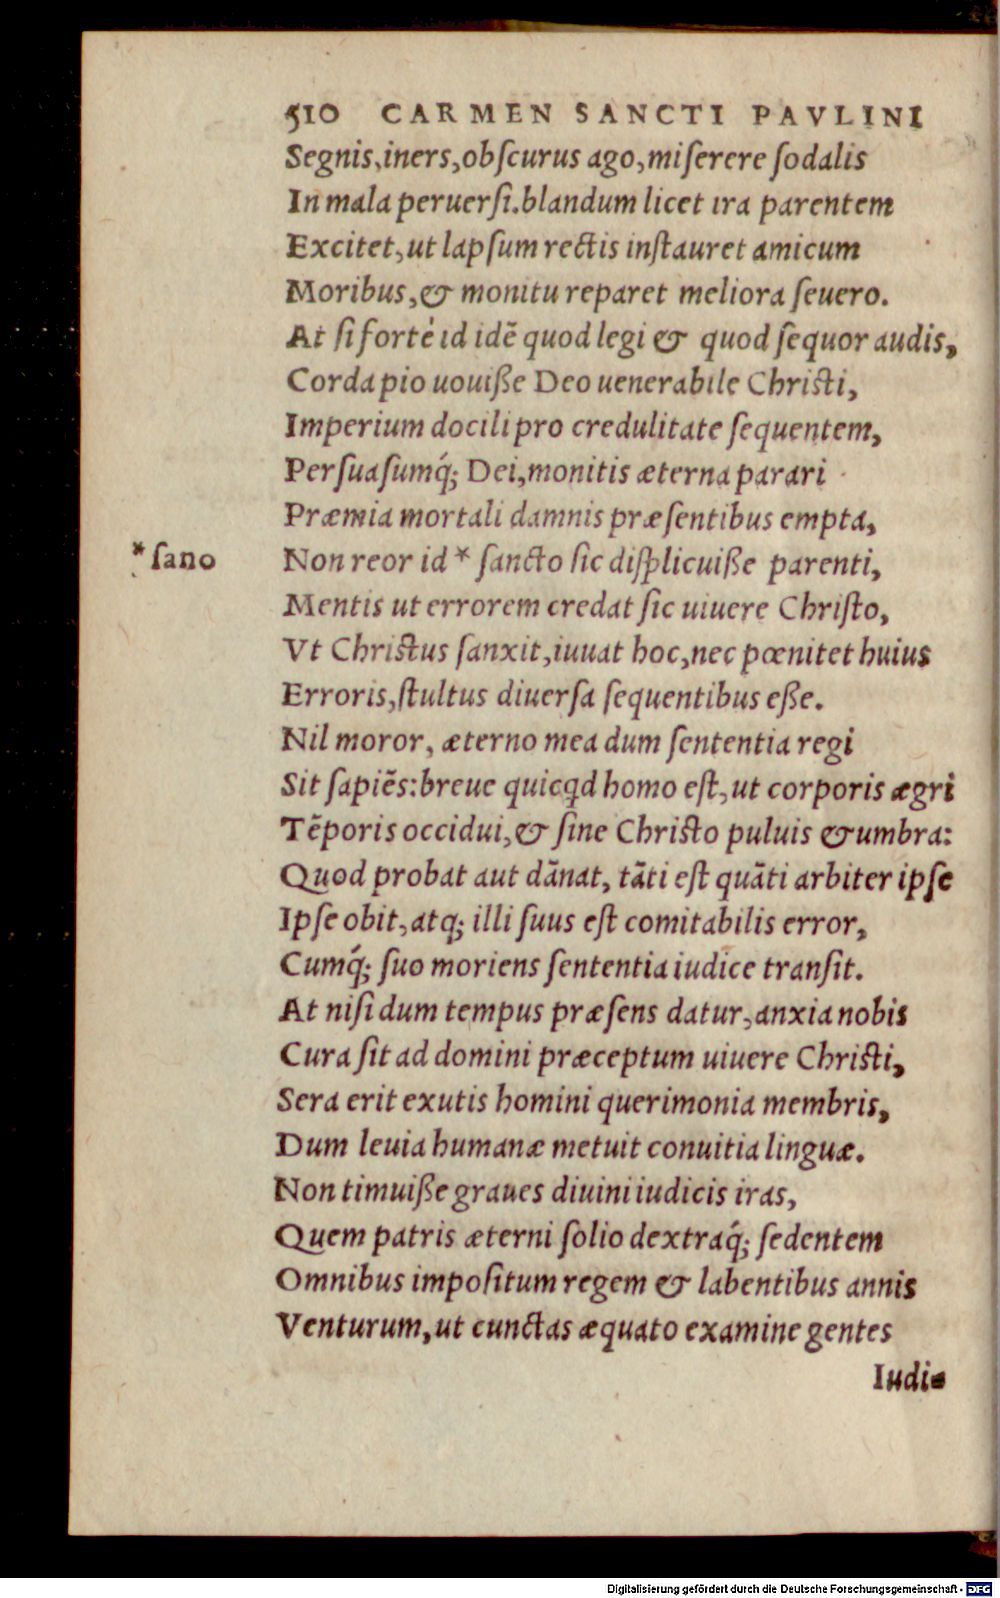 510 CARMEN SANCTI PAVLINI
Segnis,iners,obſcurus ago,miſerere ſodalis
In mala peruerſi.blandum licet ira parentem
Excitet,ut lapſum rectis inſtauret amicum
Moribus,& monitu reparet meliora ſeuero.
At ſi forté id idẽ quod legi & quod ſequor audis,
Corda pio uouiße Deo uenerabile Christi,
Imperium docili pro credulitate ſequentem,
Perſuaſumq́; Dei,monitis æterna parari
Præmia mortali damnis præſentibus empta,
*ſano
Non reor id * ſancto ſic diſplicuiße parenti,
Mentis ut errorem credat ſic uiuere Chriſto,
Vt Christus ſanxit,iuuat hoc,nec pœnitet huius
Erroris,ſtultus diuerſa ſequentibus eße.
Nil moror, æterno mea dum ſententia regi
Sit ſapiẽs:breue quicqd homo eſt,ut corporis ægri
Tẽporis occidui,& ſine Christo puluis & umbra:
Quod probat aut dãnat, tãti eſt quãti arbiter ipſe
Ipſe obit,atq; illi ſuus eſt comitabilis error,
Cumq́; ſuo moriens ſententia iudice tranſit.
At niſi dum tempus præſens datur,anxia nobis
Cura ſit ad domini præceptum uiuere Christi,
Sera erit exutis homini querimonia membris,
Dum leuia humanæ metuit conuitia linguæ.
Non timuiße graues diuini iudicis iras,
Quem patris æterni ſolio dextraq́; ſedentem
Omnibus impoſitum regem & labentibus annis
Venturum,ut cunctas æquato examine gentes
Iudi-
Digitalisierung gefördert durch die Deutsche Forschungsgemeinschaft - DFG